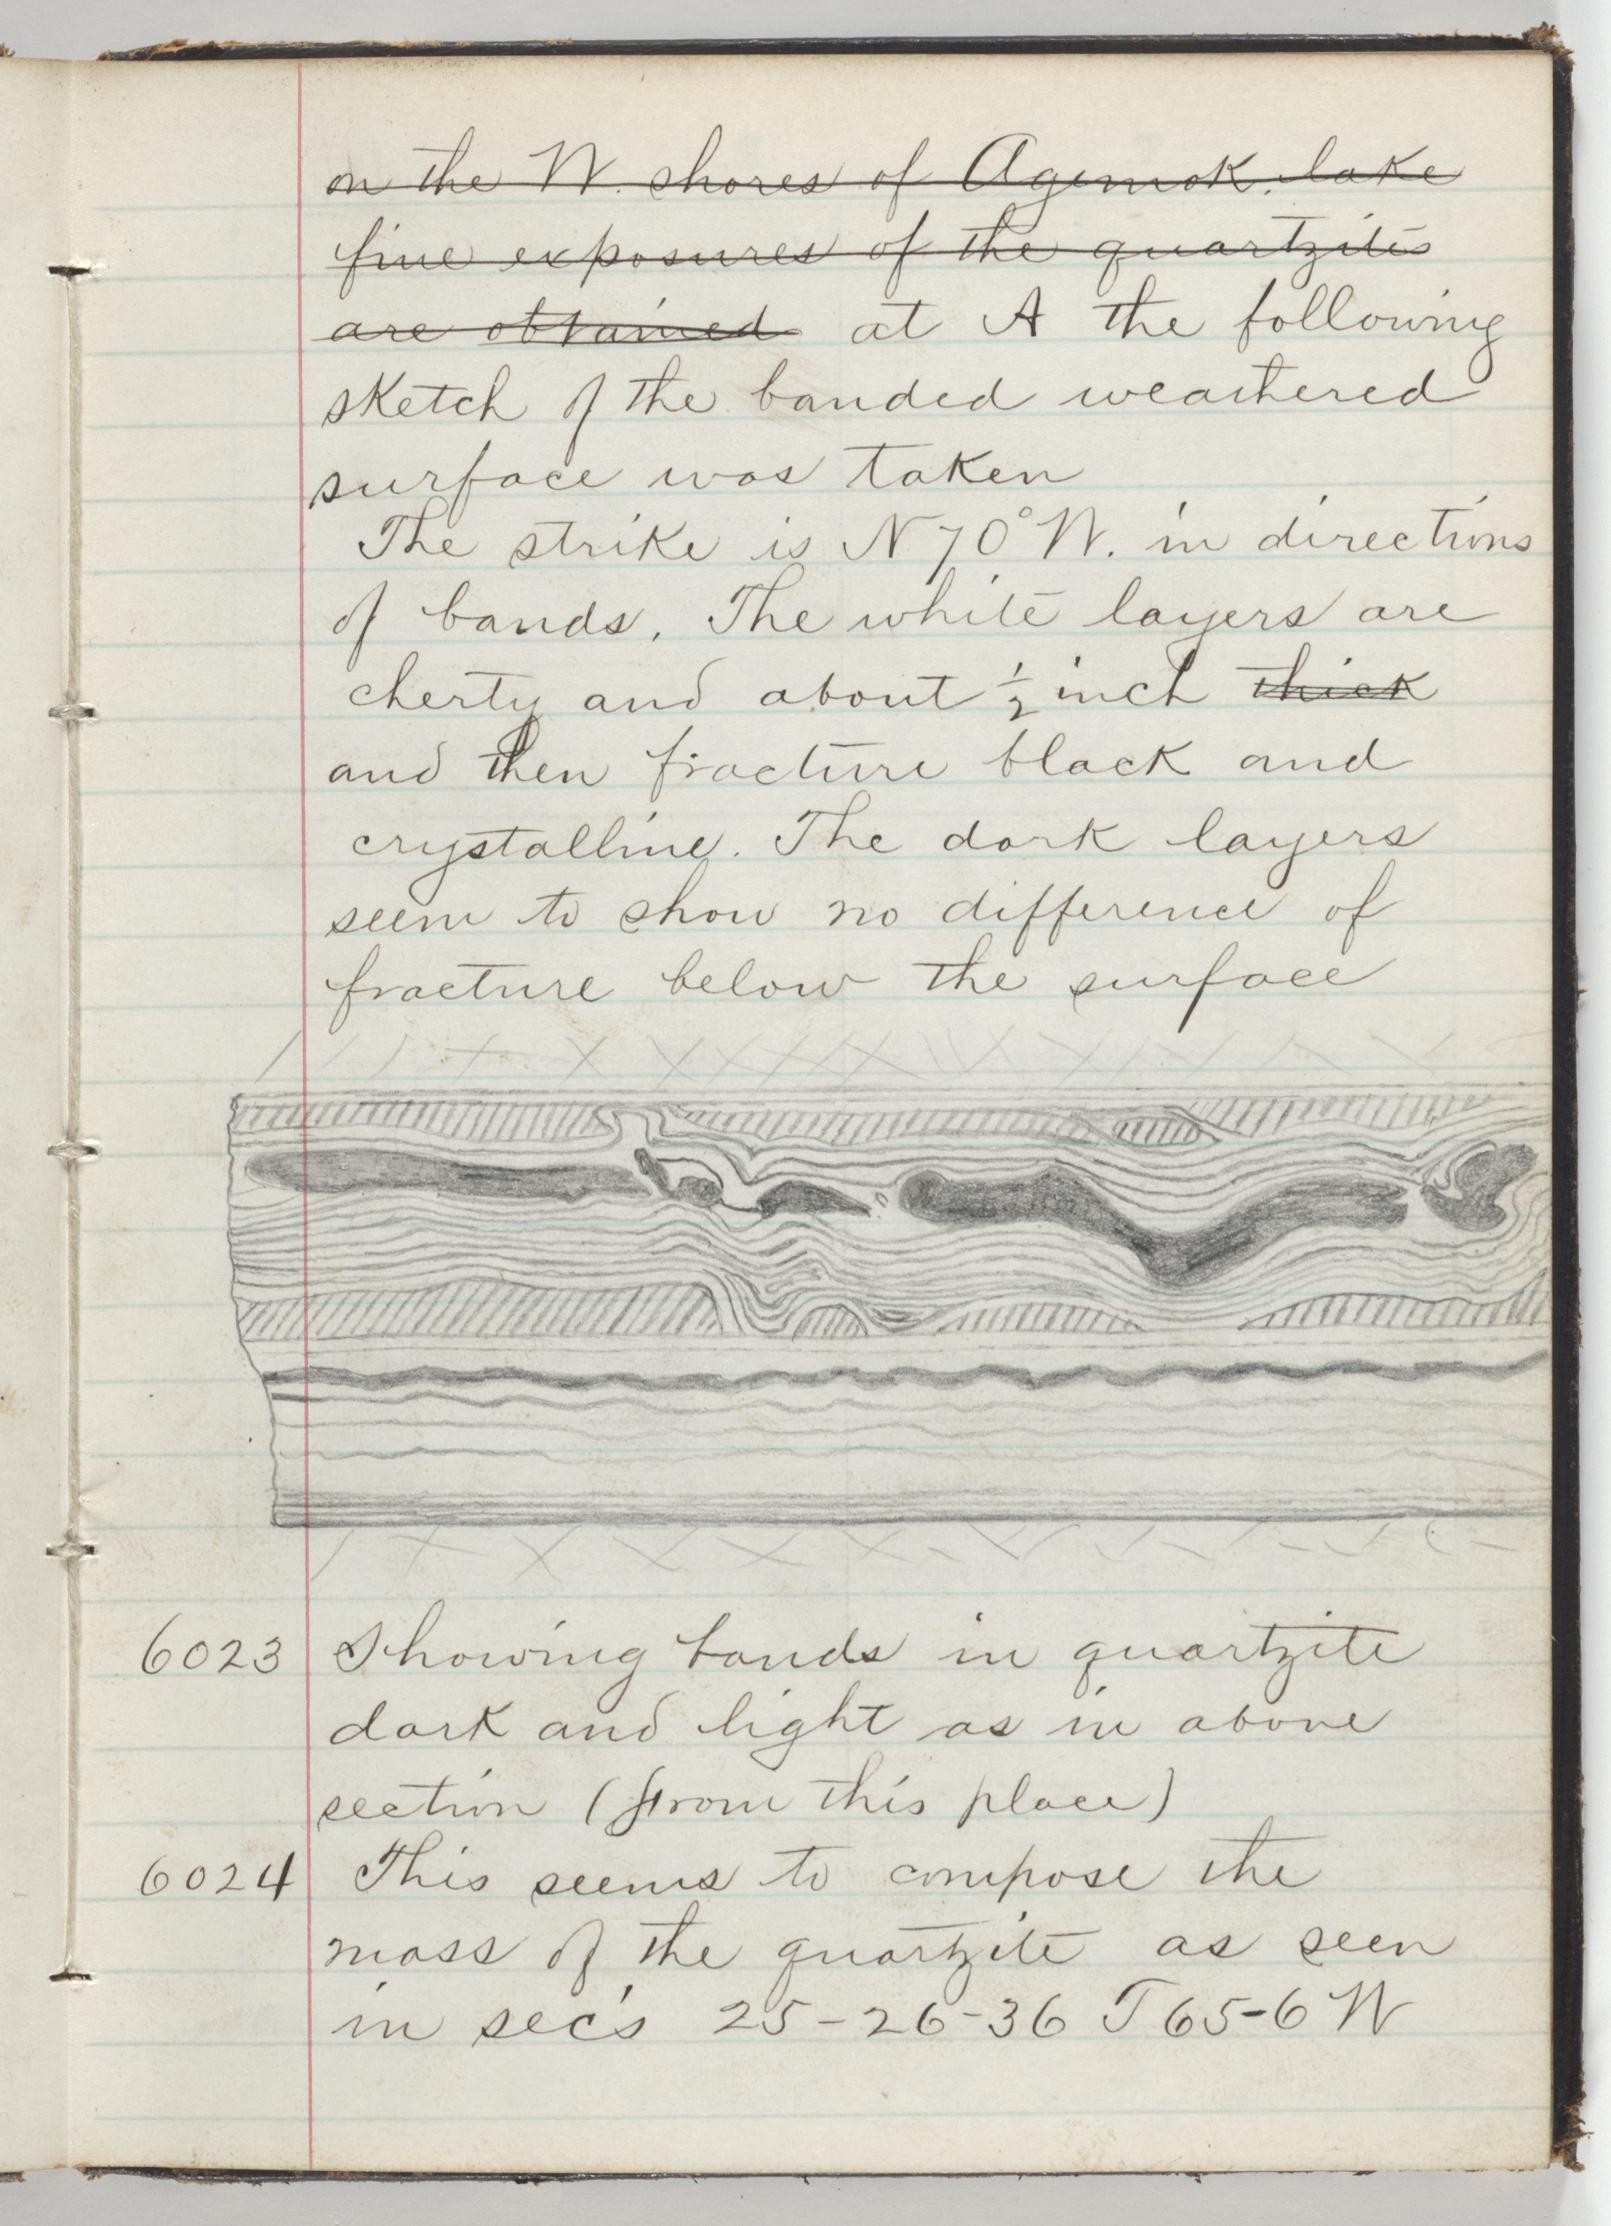 on the W. shores of Agamok lake
fine exposures of the quartzites
are obtained at A the following
sketch of the banded weathered
surface was taken
The strike is N 70° W. in directions
of bands. The white layers are
cherty and about ½ inch thick
and then fracture black and
crystalline. The dark layers
seem to show no difference of
fracture below the surface
6023 Showing bands in quartzite
dark and light as in above
section (from this place)
6024 This seems to compose the
mass of the quartzite as seen
in sec's 25-26-36 T 65-6 W